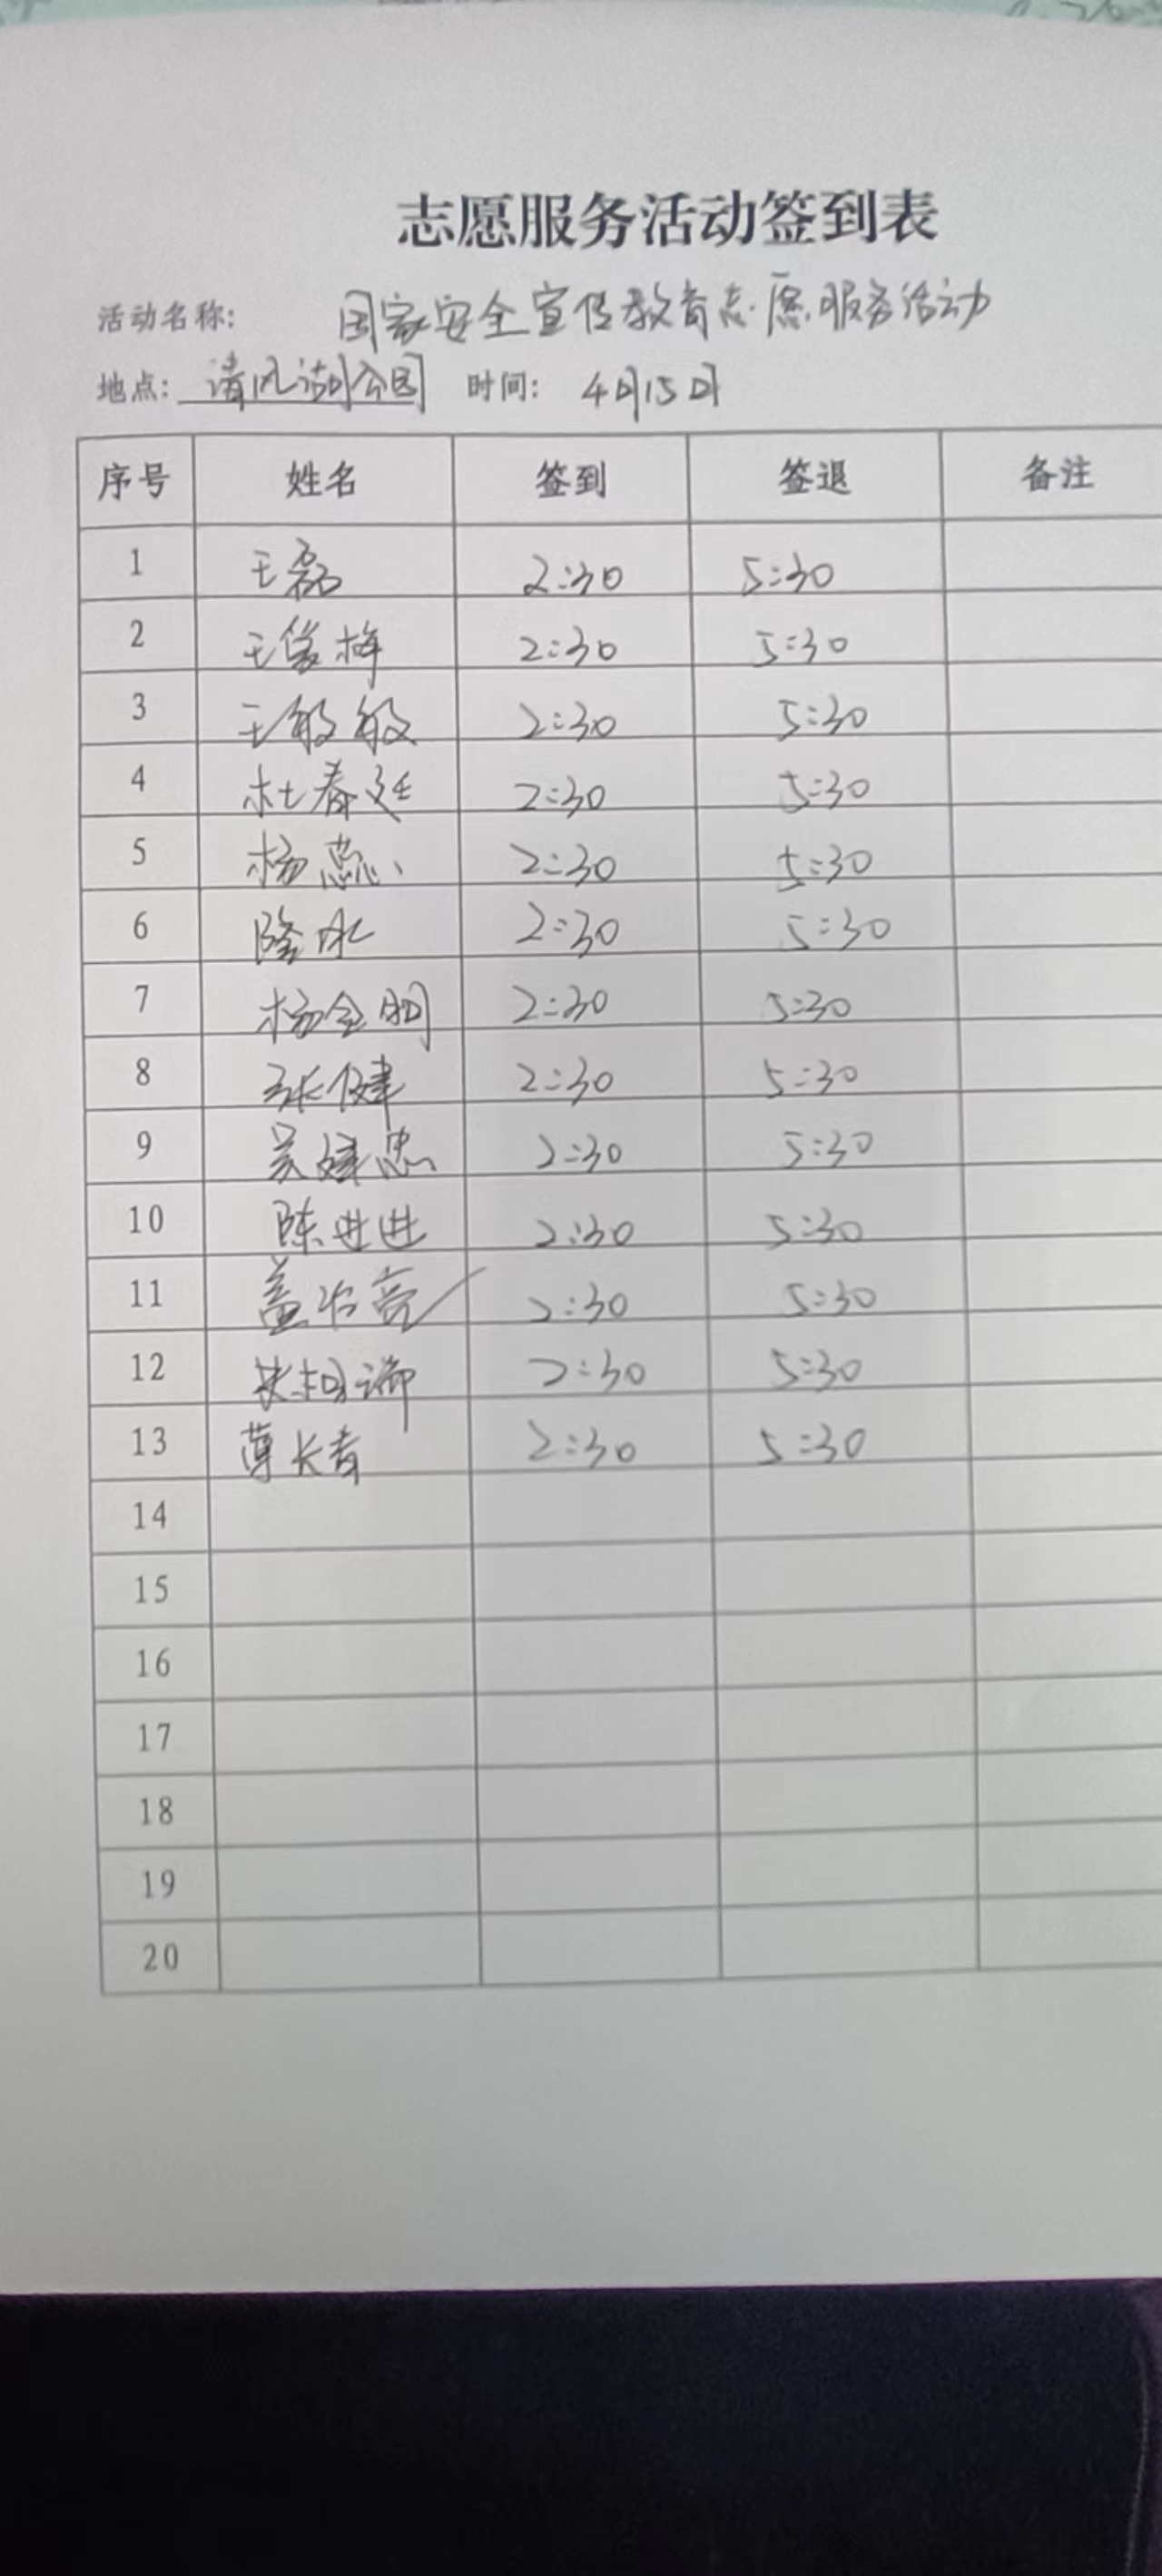 志愿服务活动签到表
活动名称: 国家安全宣传教育志愿服务活动
地点: 清风湖公园 时间: 4月15日
序号 姓名 签到 签退 备注
1 王磊 2:30 5:30
2 王俊梅 2:30 5:30
3 王敏敏 2:30 5:30
4 杜春廷 2:30 5:30
5 杨蕊 2:30 5:30
6 隆冰 2:30 5:30
7 杨金明 2:30 5:30
8 张健 2:30 5:30
9 吴建忠 2:30 5:30
10 陈进进 2:30 5:30
11 盖治亮 2:30 5:30
12 2:30 5:30
13 薄长青 2:30 5:30
14
15
16
17
18
19
20